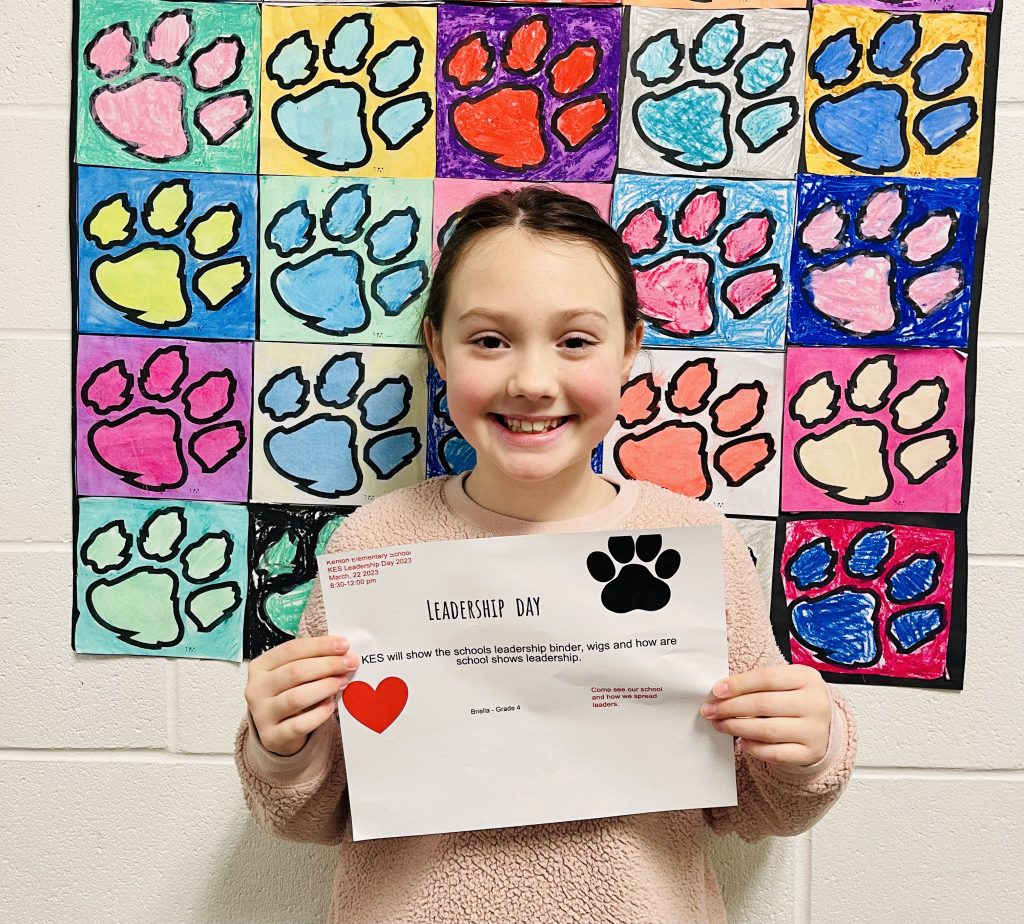 Kenton Elementary School
KES Leadership Day 2023
March, 22 2023
8:30-12:00 pm
LEADERSHIP DAY
KES will show the schools leadership binder, wigs and how are
school shows leadership.
Come see our school
and how we spread
leaders.
Briella - Grade 4